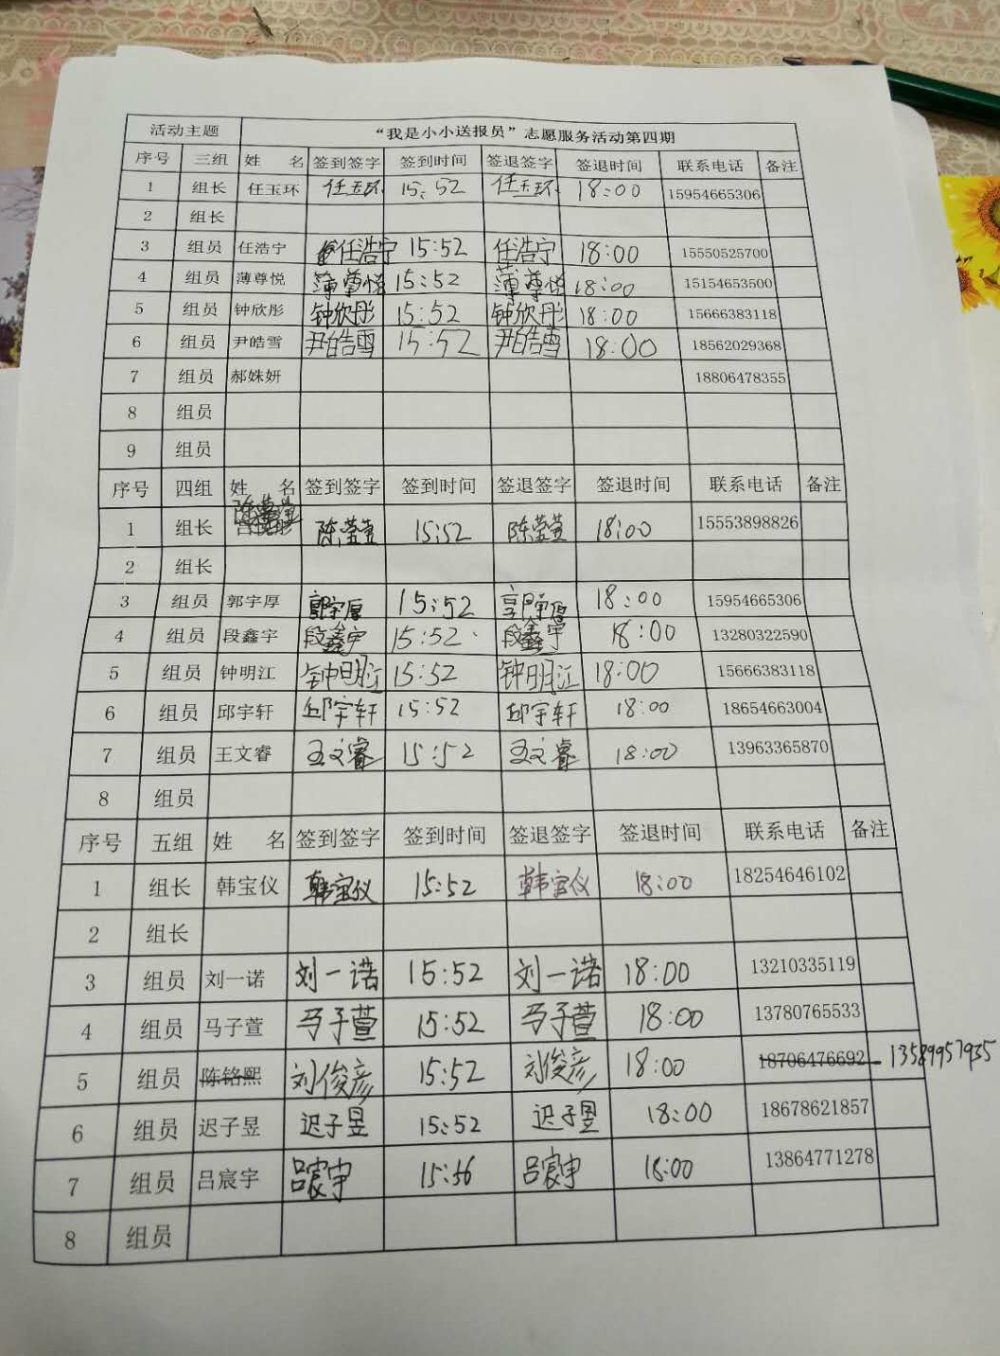 活动主题 “我是小小送报员”志愿服务活动第四期
序号 三组 姓 名 签到签字 签到时间 签退签字 签退时间 联系电话 备注
1 组长 任玉环 任玉环 15:52 任玉环 18:00 15954665306
2 组长
3 组员 任浩宁 任浩宁 15:52 任浩宁 18:00 15550525700
4 组员 薄尊悦 薄尊悦 15:52 薄尊悦 18:00 15154653500
5 组员 钟欣彤 钟欣彤 15:52 钟欣彤 18:00 15666383118
6 组员 尹皓雪 尹皓雪 15:52 尹皓雪 18:00 18562029368
7 组员 郝姝妍 18806478355
8 组员
9 组员
序号 四组 姓 名 签到签字 签到时间 签退签字 签退时间 联系电话 备注
1 组长 陈莹萱 15:52 陈莹萱 18:00 15553898826
2 组长
3 组员 郭宇厚 郭宇厚 15:52 郭宇厚 18:00 15954665306
4 组员 段鑫宇 段鑫宇 15:52 段鑫宇 18:00 13280322590
5 组员 钟明江 钟明江 15:52 钟明江 18:00 15666383118
6 组员 邱宇轩 邱宇轩 15:52 邱宇轩 18:00 18654663004
7 组员 王文睿 王文睿 15:52 王文睿 18:00 13963365870
8 组员
序号 五组 姓 名 签到签字 签到时间 签退签字 签退时间 联系电话 备注
1 组长 韩宝仪 韩宝仪 15:52 韩宝仪 18:00 18254646102
2 组长
3 组员 刘一诺 刘一诺 15:52 刘一诺 18:00 13210335119
4 组员 马子萱 马子萱 15:52 马子萱 18:00 13780765533
5 组员 陈铭熙 刘俊彦 15:52 刘俊彦 18:00 18706476692 13589957935
6 组员 迟子昱 迟子昱 15:52 迟子昱 18:00 18678621857
7 组员 吕宸宇 吕宸宇 15:56 吕宸宇 18:00 13864771278
8 组员